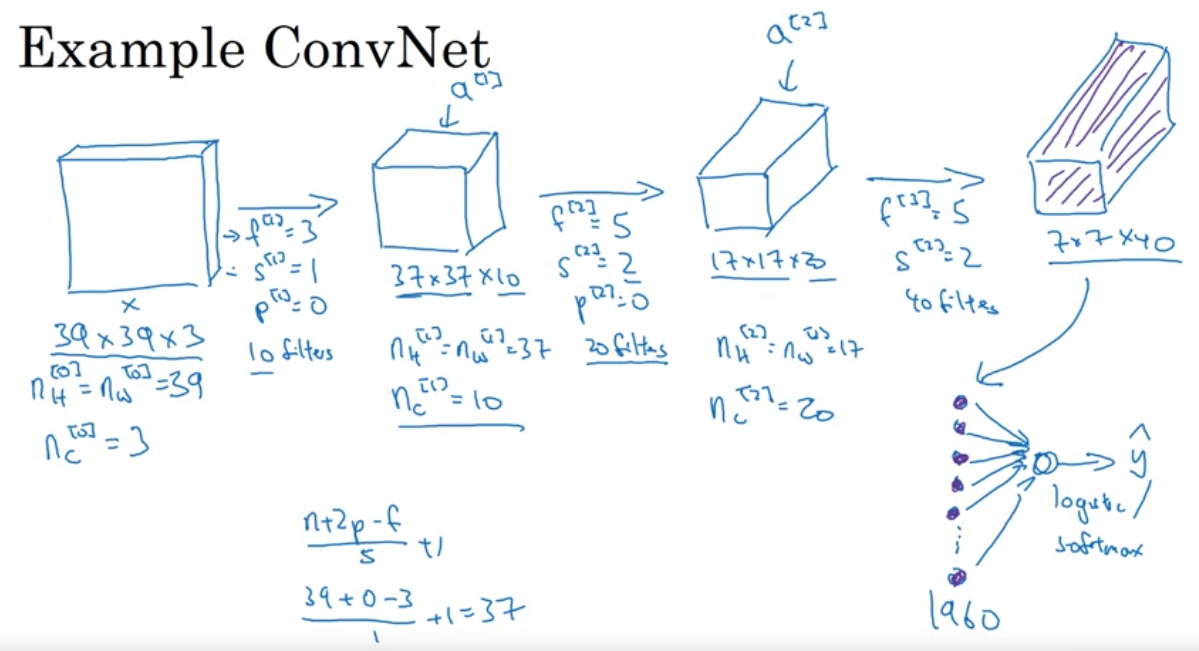 Example ConvNet
a^[1]
a^[2]
x
39×39×3
n_H^[0] = n_W^[0] = 39
n_C^[0] = 3
→ f^[1] = 3
s^[1] = 1
p^[1] = 0
10 filters
37×37×10
n_H^[1] = n_W^[1] = 37
n_C^[1] = 10
f^[2] = 5
s^[2] = 2
p^[2] = 0
20 filters
17×17×20
n_H^[2] = n_W^[2] = 17
n_C^[2] = 20
f^[3] = 5
s^[2] = 2
40 filters
7×7×40
1960
ŷ
logistic /
softmax
n+2p-f
s
+1
39+0-3
1
+1 = 37